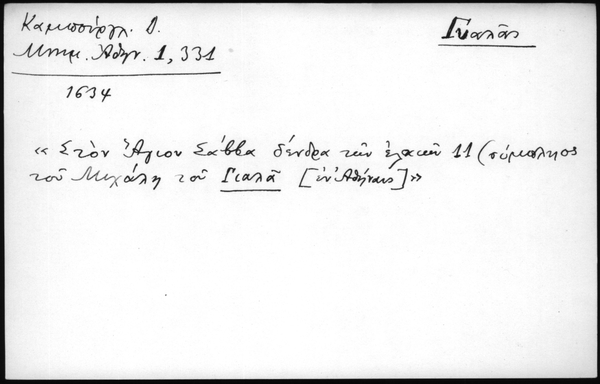 Καμπούργλ. Δ.
Γυαλᾶς
Μνημ. Ἀθην. 1, 331
1634
« Στὸν Ἅγιον Σάββα δένδρα τῶν ἐλαιῶν 11 (σύμπλησος
τοῦ Μιχάλη τοῦ Γιαλᾶ [ἐν Ἀθήναις]»